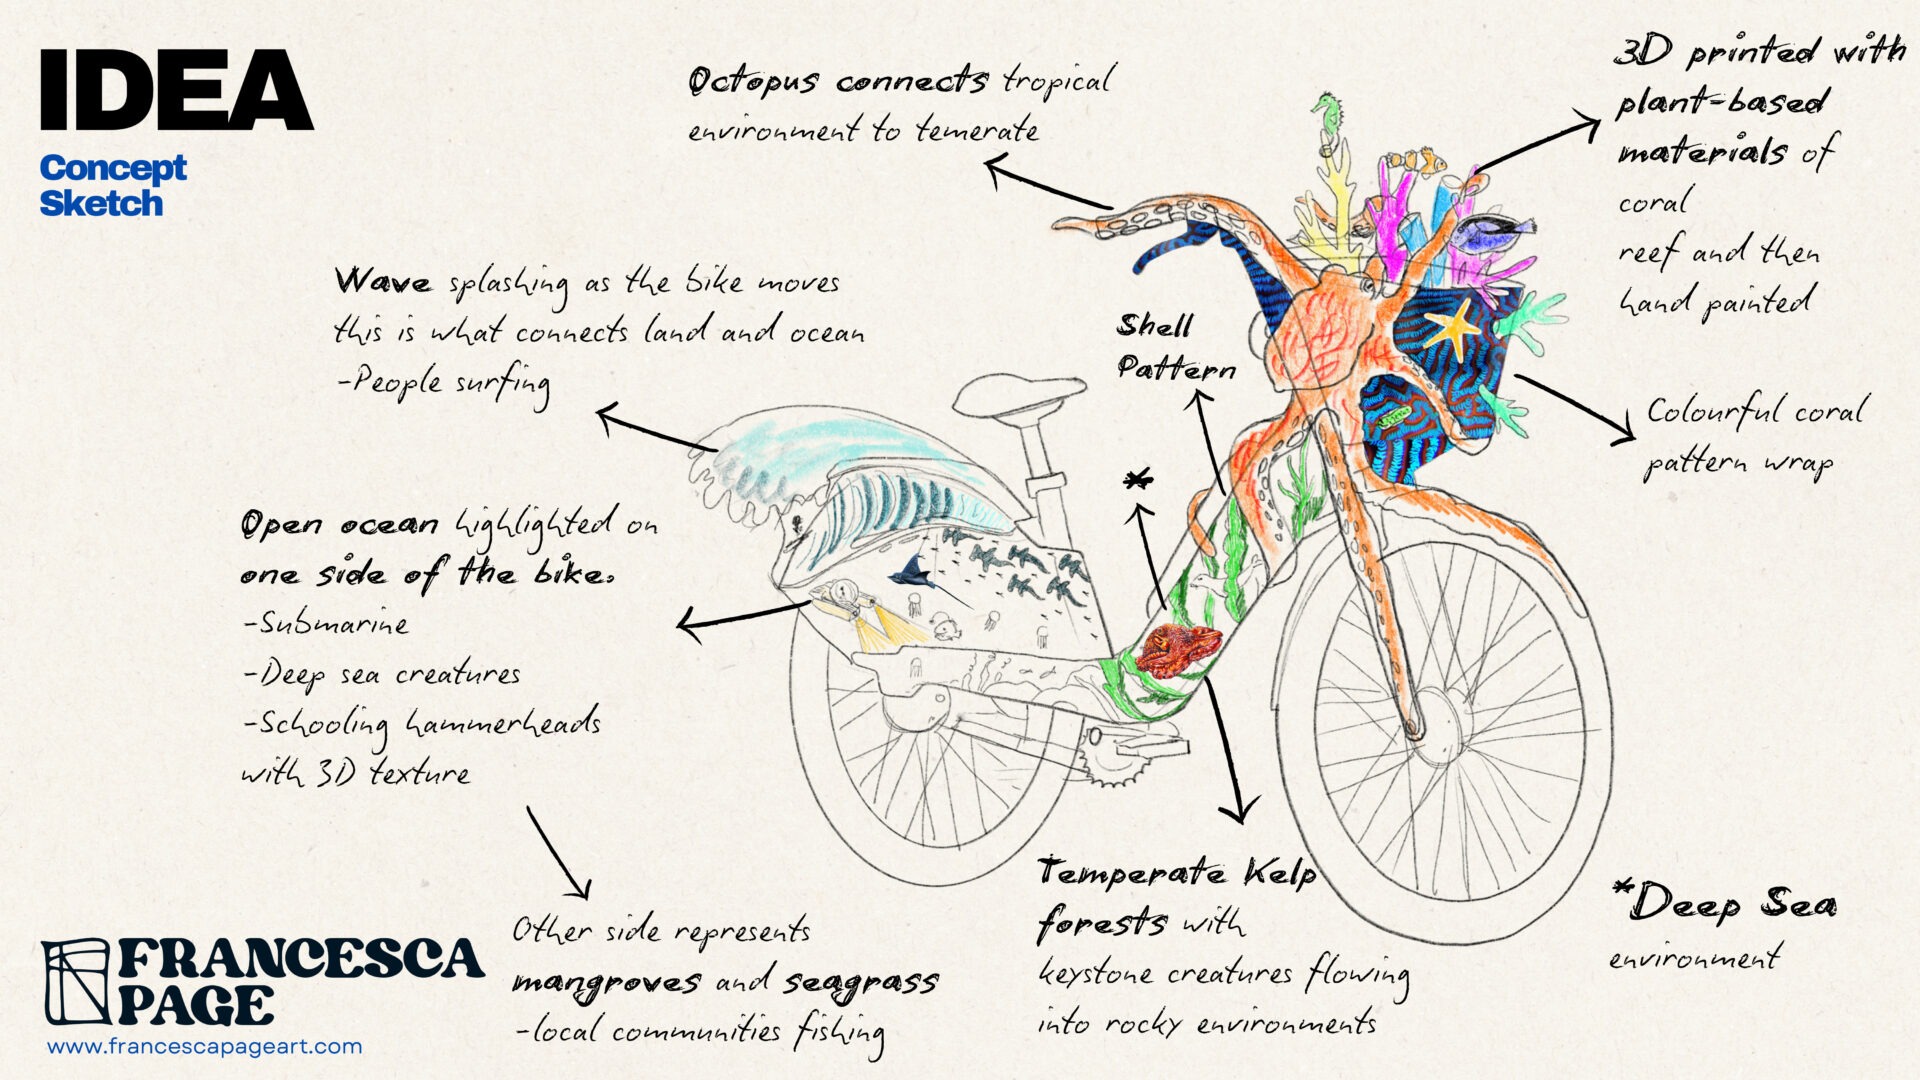 IDEA
Concept
Sketch
Octopus connects tropical
environment to temerate
3D printed with
plant-based
materials of
coral
reef and then
hand painted
Wave splashing as the bike moves
this is what connects land and ocean
-People surfing
Shell
Pattern
Colourful coral
pattern wrap
*
Open ocean highlighted on
one side of the bike.
-Submarine
-Deep sea creatures
-Schooling hammerheads
with 3D texture
Other side represents
mangroves and seagrass
-local communities fishing
Temperate Kelp
forests with
keystone creatures flowing
into rocky environments
*Deep Sea
environment
FRANCESCA
PAGE
www.francescapageart.com